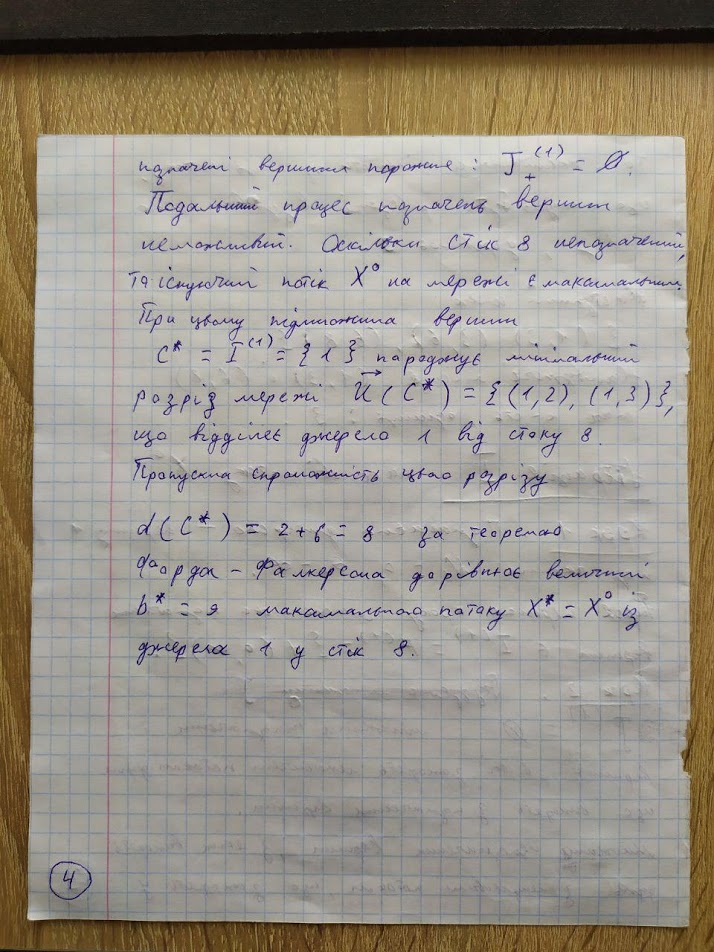 позначені вершини порожня : J₊⁽¹⁾ = ∅.
Подальший процес позначень вершин
неможливий. Оскільки стік 8 непозначений,
то існуючий потік X⁰ на мережі є максимальним.
При цьому підмножина вершин
C* = I⁽¹⁾ = {1} породжує мінімальний
розріз мережі U⃗(C*) = {(1,2), (1,3)},
що відділяє джерело 1 від стоку 8.
Пропускна спроможність цього розрізу
d(C*) = 2+6 = 8 за теоремою
Форда - Фалкерсона дорівнює величині
b* = 9 максимального потоку X* = X⁰ із
джерела 1 у стік 8.
4